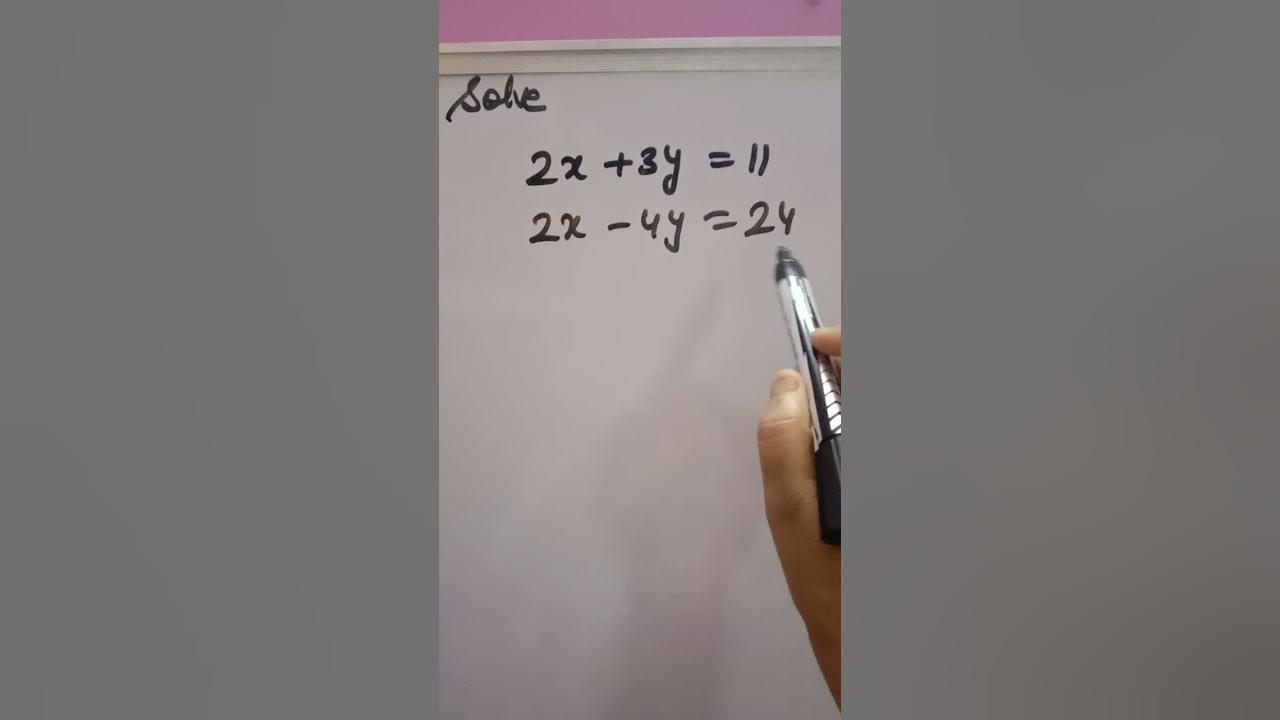 Solve
2x + 3y = 11
2x - 4y = 24